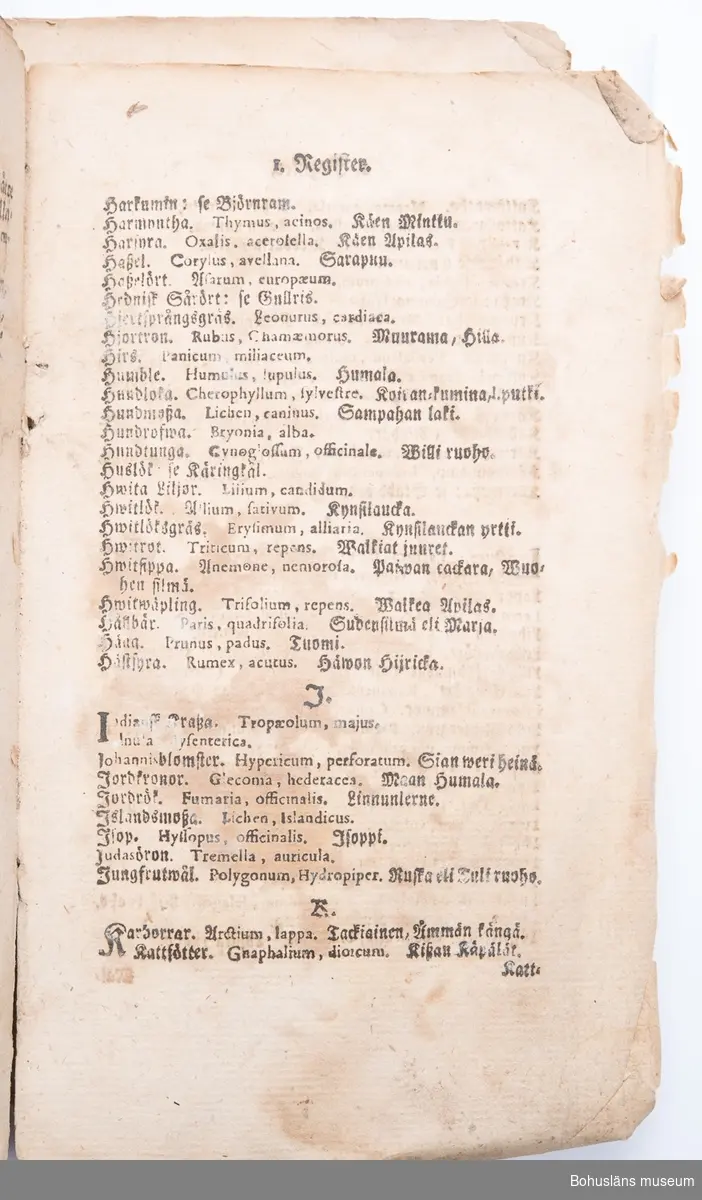 1. Register.
Harkumin: se Björnram.
Harmyntha. Thymus, acinos. Käen Minttu.
Harsyra. Oxalis, acetosella. Käen Apilas.
Haßel. Corylus, avellana. Sarapuu.
Haßelört. Asarum, europæum.
Hednisk Sårört: se Gullris.
Hjertsprångsgräs. Leonurus, cardiaca.
Hjortron. Rubus, Chamæmorus. Muurama, Hilla.
Hirs. Panicum, miliaceum.
Humble. Humulus, lupulus. Humala.
Hundloka. Cherophyllum, sylvestre. Koiran-kumina, l. putki.
Hundmoßa. Lichen, caninus. Sampahan laki.
Hundrofwa. Bryonia, alba.
Hundtunga. Cynoglossum, officinale. Willi ruoho.
Huslök: se Käringkål.
Hwita Liljor. Lilium, candidum.
Hwitlök. Allium, sativum. Kynsilaucka.
Hwitlöksgräs. Erysimum, alliaria. Kynsilauckan yrtti.
Hwitrot. Triticum, repens. Walkiat juuret.
Hwitsippa. Anemone, nemorosa. Paiwan cackara, Wuo-
hen silmä.
Hwitwäpling. Trifolium, repens. Walkea Apilas.
Hällbär. Paris, quadrifolia. Sudensilmä eli Marja.
Hägg. Prunus, padus. Tuomi.
Hästsyra. Rumex, acutus. Häwon Hijricka.
J.
Indiansk Kraßa. Tropæolum, majus.
Inula dysenterica.
Johannisblomster. Hypericum, perforatum. Sian weri heinä.
Jordkronor. Glecoma, hederacea. Maan Humala.
Jordrök. Fumaria, officinalis. Linnunierne.
Islandsmoßa. Lichen, Islandicus.
Isop. Hyssopus, officinalis. Isoppi.
Judasöron. Tremella, auricula.
Jungfrutwål. Polygonum, Hydropiper. Ruska eli Tuli ruoho.
K.
Karborrar. Arctium, lappa. Tackiainen, Ämmän kängä.
Kattfötter. Gnaphalium, dioicum. Kißan Käpälät.
Katt-
Bohusläns museum